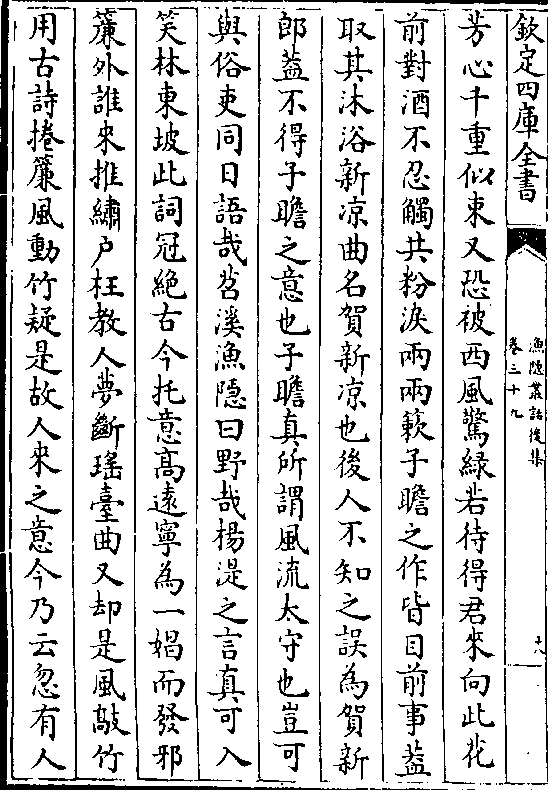 欽定四庫全書
漁隱叢話後集
卷三十九
十八
芳心千重似束又恐被西風驚緑若待得君來向此花
前對酒不忍觸共粉淚兩兩簌子瞻之作皆目前事葢
取其沐浴新凉曲名賀新凉也後人不知之誤為賀新
郎葢不得子瞻之意也子瞻真所謂風流太守也豈可
與俗吏同日語哉苕溪漁隱曰野哉楊湜之言真可入
笑林東坡此詞冠絶古今托意髙逺寧為一娼而發邪
簾外誰來推繡户枉教人夢斷瑤臺曲又却是風敲竹
用古詩捲簾風動竹疑是故人來之意今乃云忽有人